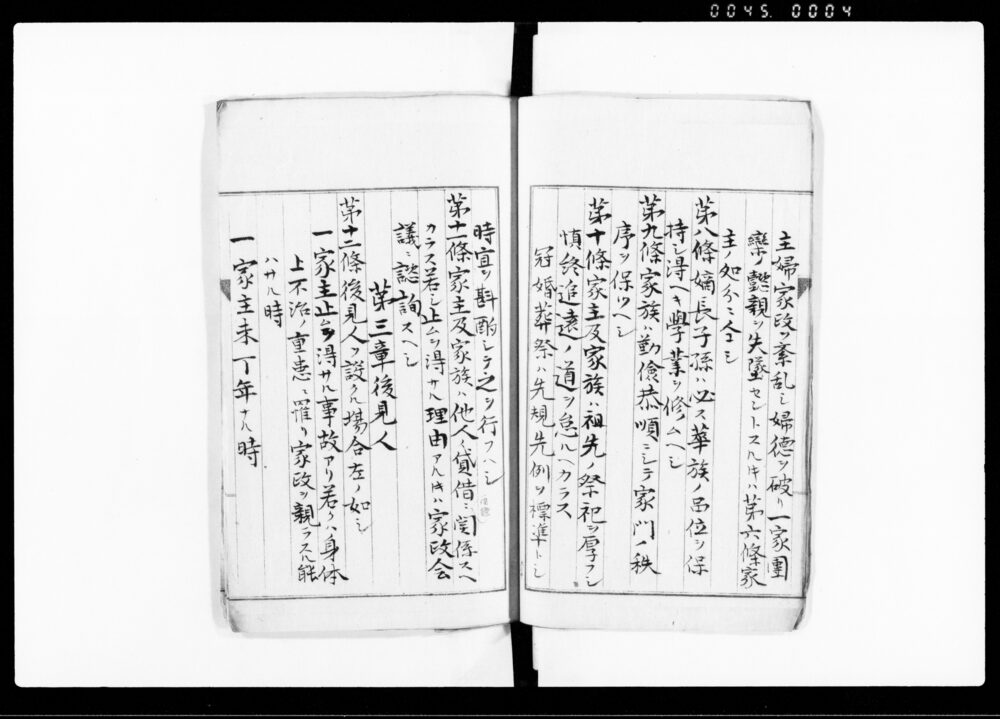 0045. 0004
主婦家政ヲ紊乱シ婦德ヲ破リ一家團
欒ノ懿親ヲ失墜セントスル𪜈ハ第六條家
主ノ処分ニ仝シ
第八條嫡長子孫ハ必ス華族ノ品位ヲ保
持シ得ヘキ學業ヲ修ムヘシ
第九條家族ハ勤儉恭順ニシテ家門ノ秩
序ヲ保ツヘシ
第十條家主及家族ハ祖先ノ祭祀ヲ厚フシ
慎終追遠ノ道ヲ怠ルヘカラス
冠婚葬祭ハ先規先例ヲ標準トシ
時宜ヲ斟酌シテ之ヲ行フヘシ
第十一條家主及家族ハ他人ノ貸借ニ関係スヘ
カラス若シ止ムヲ得サル理由アルキハ家政会
議ニ諮詢スヘシ
第三章後見人
第十二條後見人ヲ設クル場合左ノ如シ
一家主止ムヲ得サル事故アリ若クハ身体
上不治ノ重患ニ罹リ家政ヲ親ラスル能
ハサル時
一家主未丁年ナル時